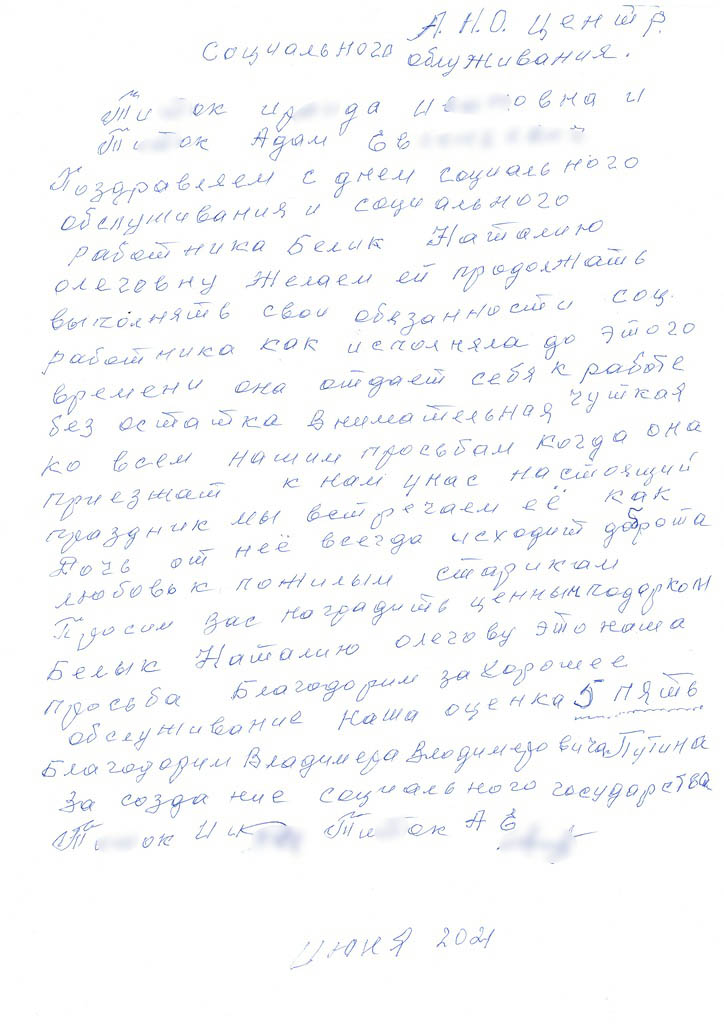 А.Н.О. центр.
социального облуживания.
Ти ок ир да И овна и
Ти ок Адам Ев
Поздравляем с днем социального
обслушивания и социального
работника Белик Наталию
олеговну желаем ей продолжать
выполнять свои обязанности соц.
работника как исполняла до этого
времени она отдаёт себя к работе
без остатка внимательная чуткая
ко всем нашим просьбам когда она
приезжат к нам унас настоящий
праздник мы встречаем её как
Дочь от неё всегда исходит доброта
любовь к пожилым старикам
Просим вас наградить ценным подарком
Белык Наталию олегову это наша
просьба Благодорим за хорошее
обслуживание наша оценка 5 пять
Благодорим Владимера Владимеровича Путина
За создание социального государства
Ти ок И Ти ок А Е
июня 2021